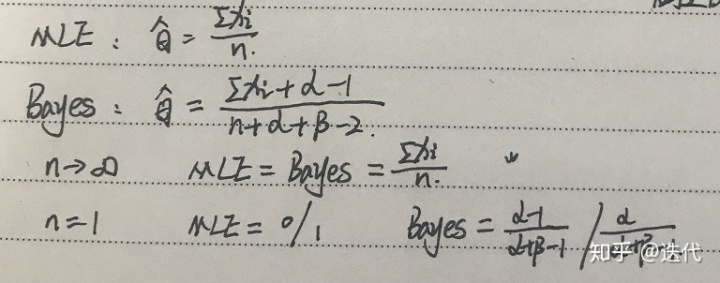 MLE: θ̂ = Σxi / n.
Bayes: θ̂ = (Σxi + α - 1) / (n + α + β - 2).
n→∞ MLE = Bayes = Σxi / n.
n=1 MLE = 0/1 Bayes = (α-1)/(α+β-1) / α/
知乎 @迭代